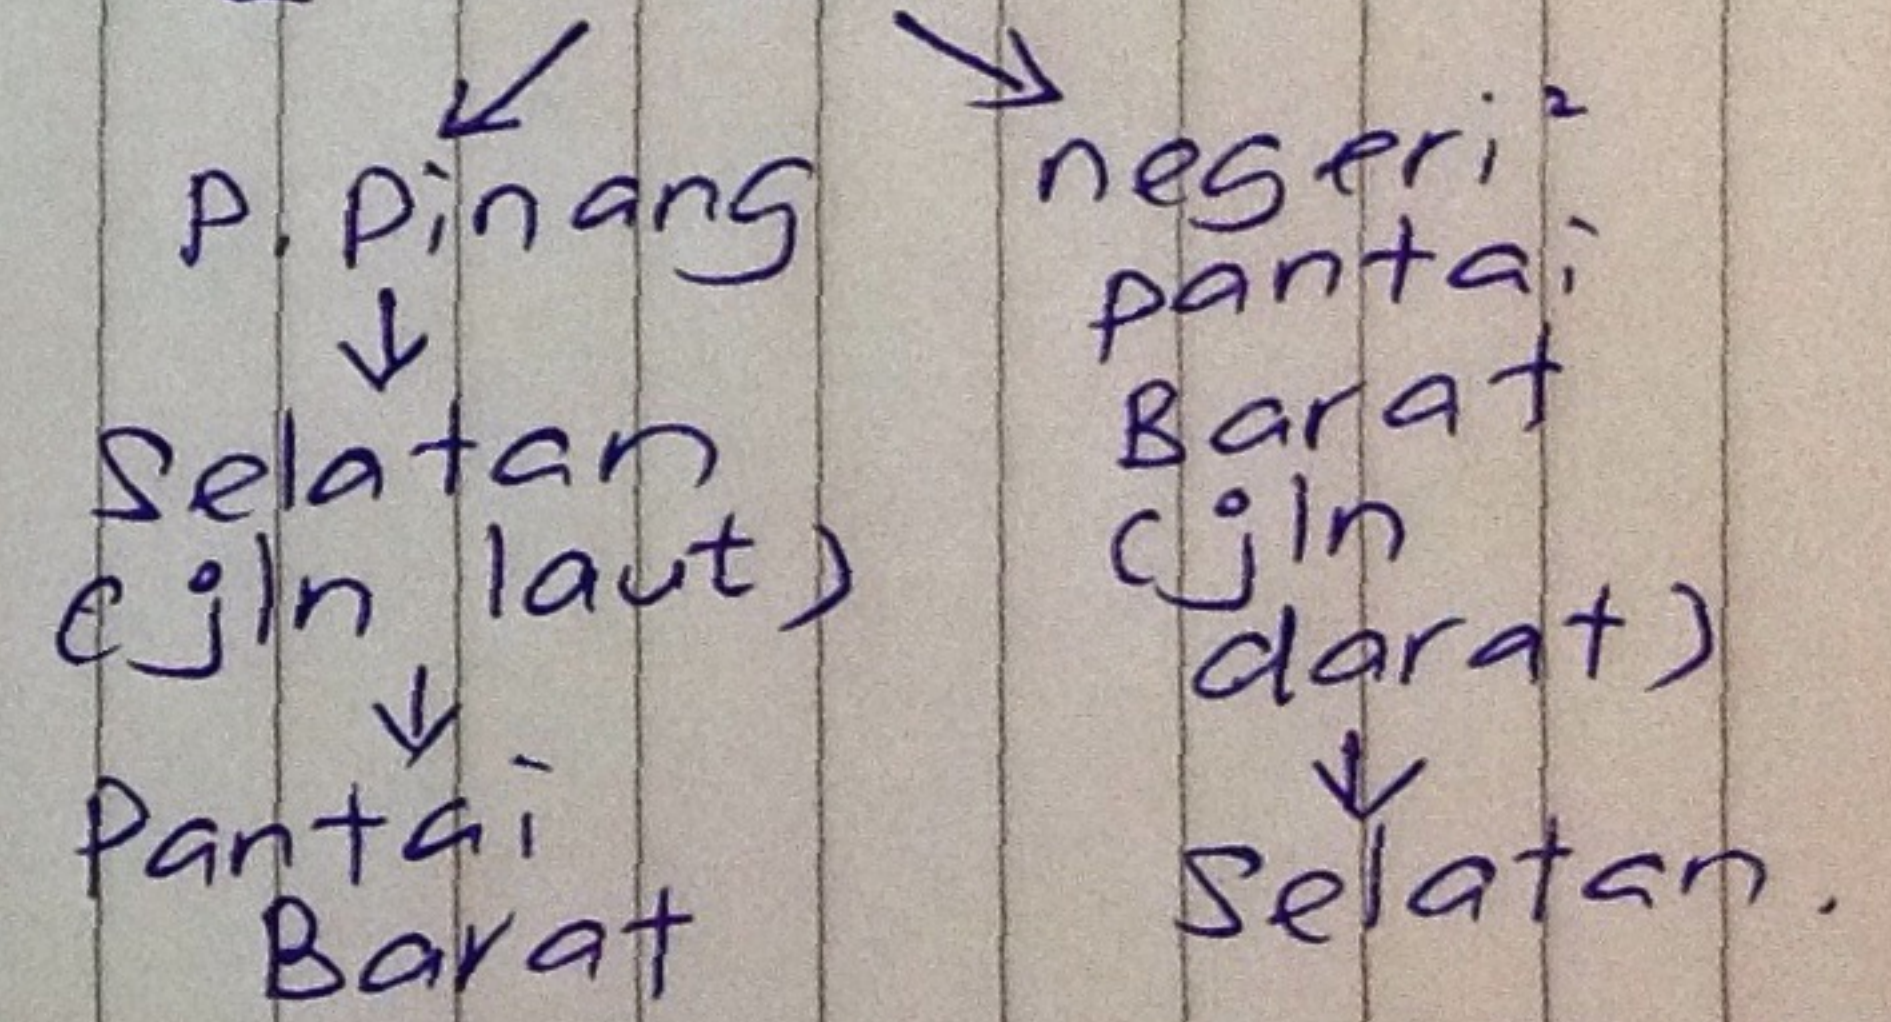 P. Pinang
Selatan
(jln laut)
Pantai
Barat
negeri²
pantai
Barat
(jln
darat)
Selatan.